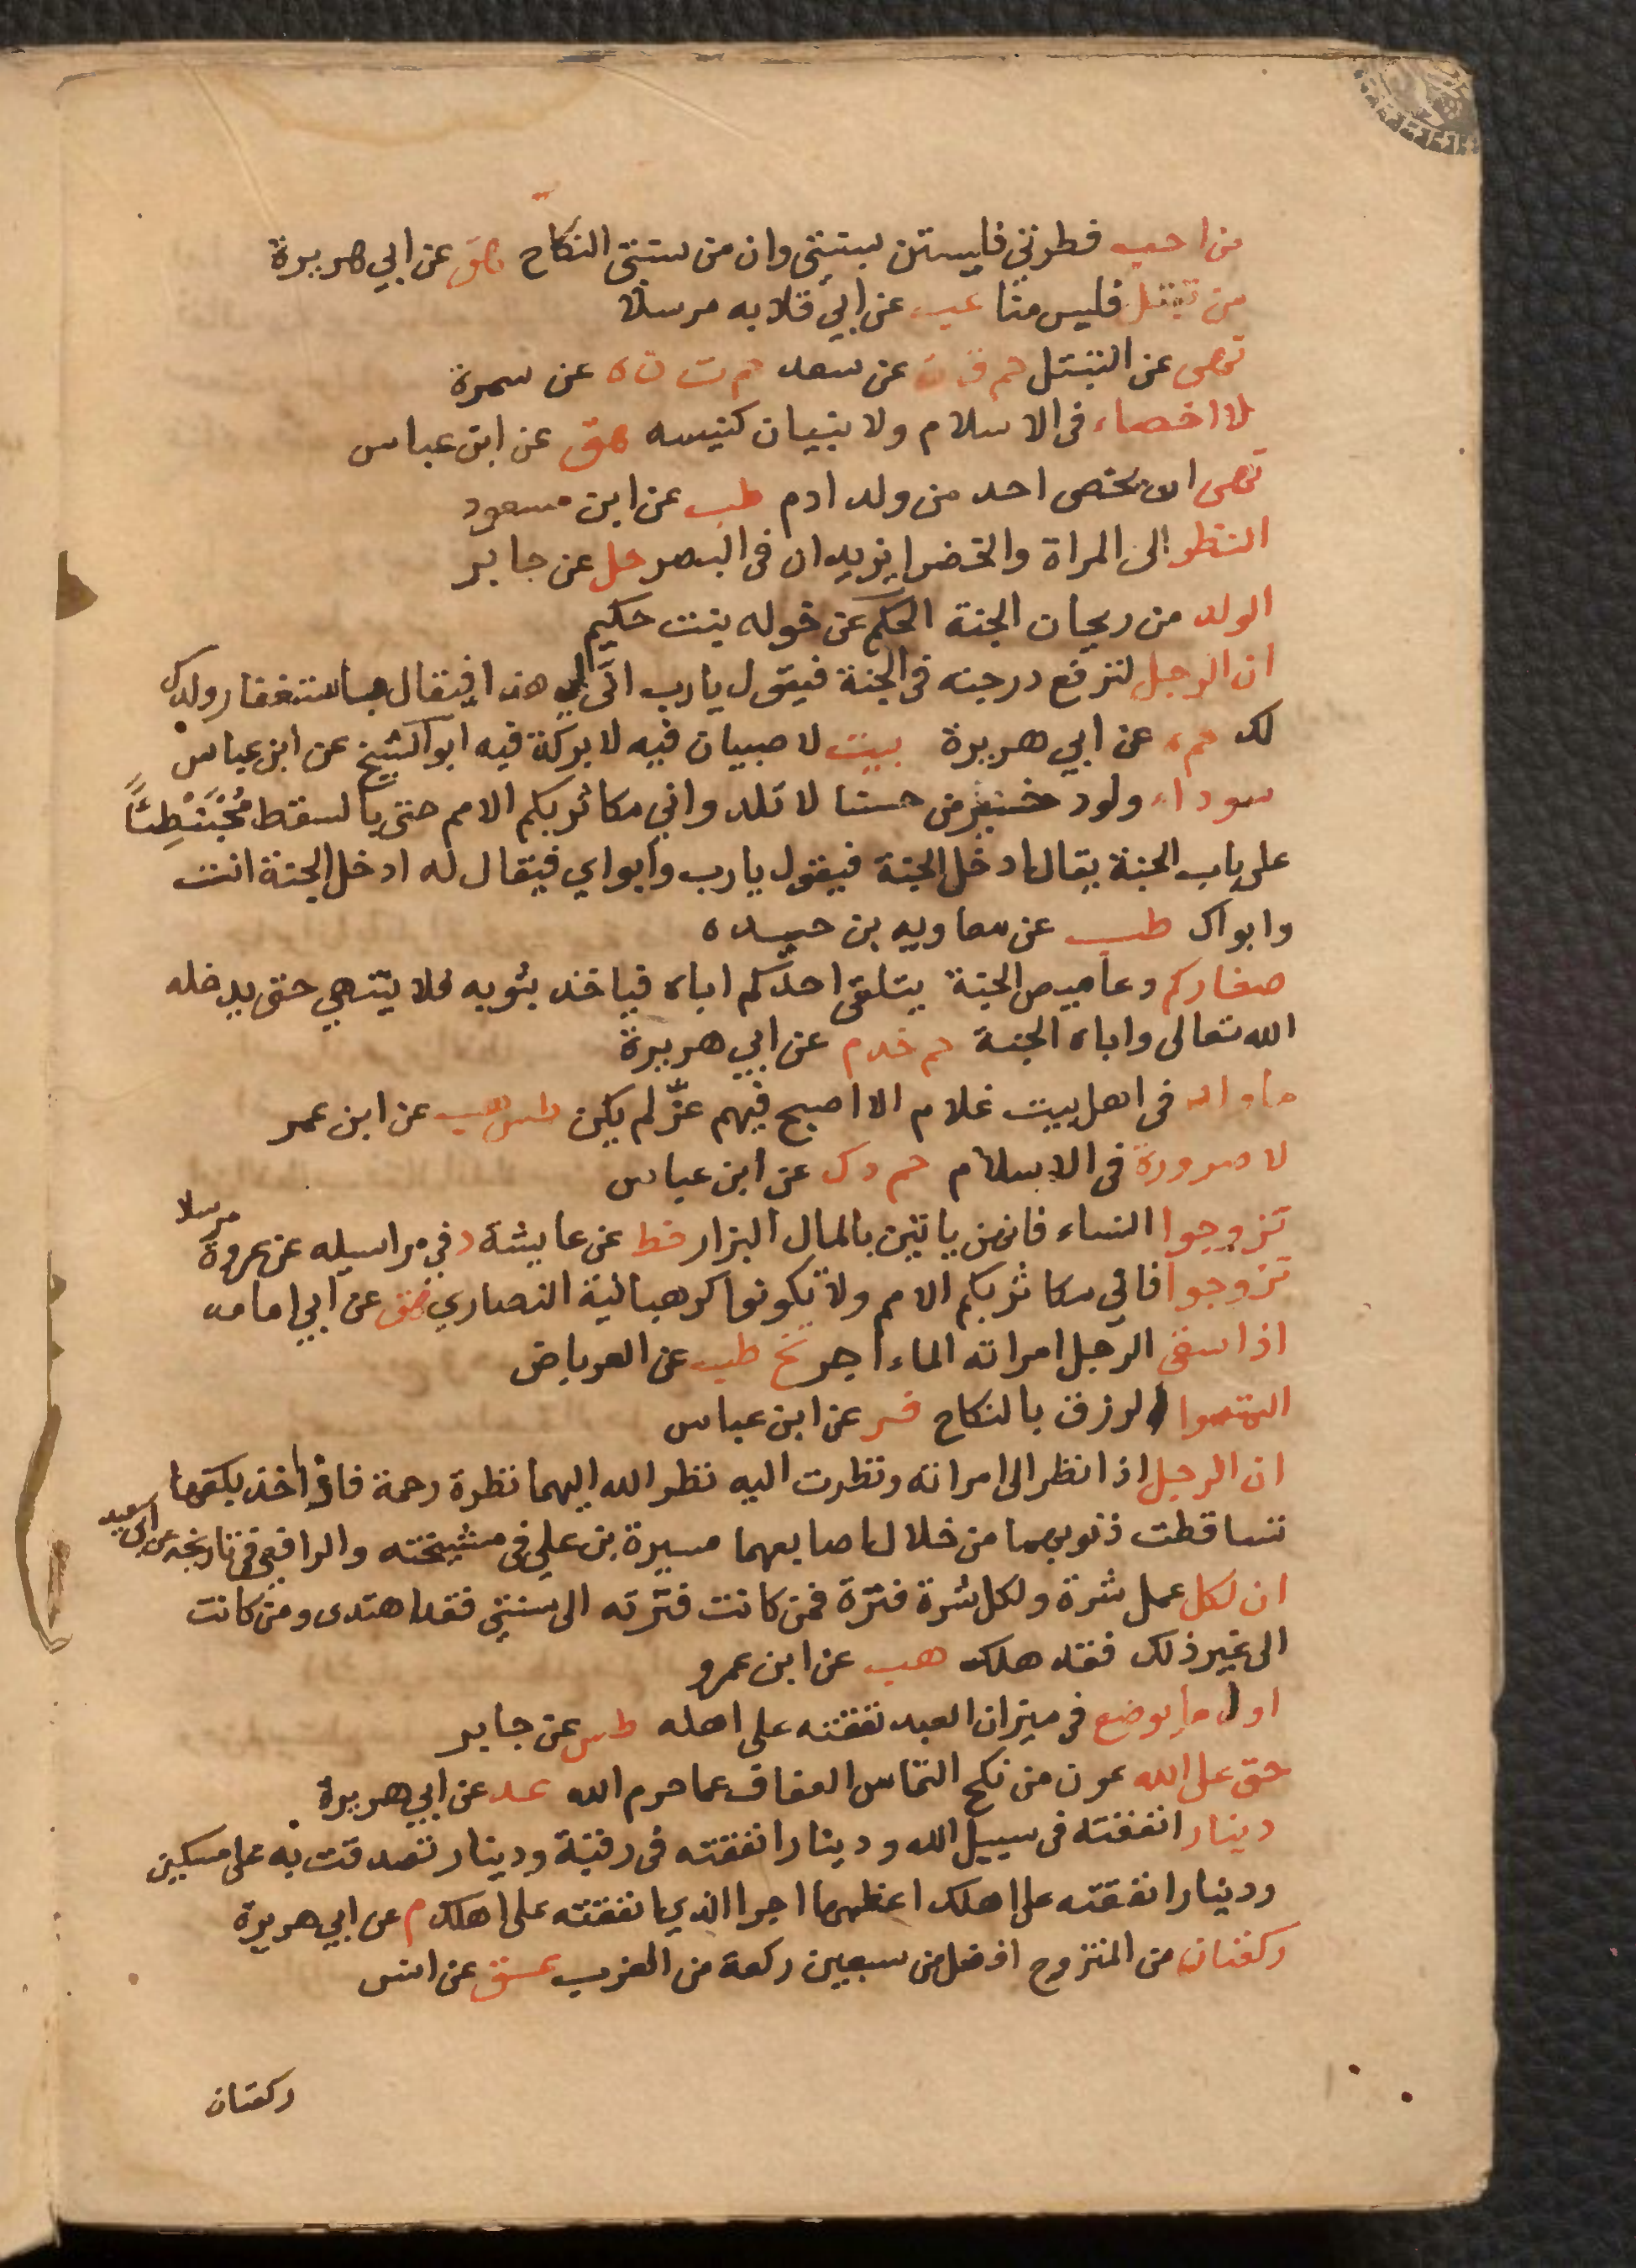 من احب فطرتي فليستن بسنتي وان من سنتي النكاح هق عن ابي هريرة
من تبتل فليس منا عب عن ابي قلابه مرسلا
نهى عن التبتل حم ق ن عن سعد حم ت ن ه عن سمرة
لا اخصاء في الاسلام ولا بنيان كنيسه هق عن ابن عباس
نهى ان يختصى احد من ولد ادم طب عن ابن مسعود
النظر الى المراة والخضرا يزيدان في البصر حل عن جابر
الولد من ريحان الجنة الحكيم عن خوله بنت حكيم
ان الرجل لترفع درجته في الجنة فيقول يارب انى لي هذا فيقال باستغفار ولدك
لك حم ه عن ابي هريرة بيت لا صبيان فيه لا بركة فيه ابو الشيخ عن ابن عباس
سوداء ولود خير من حسنا لا تلد واني مكاثر بكم الامم حتى بالسقط مُحْبَنْطِئًا
على باب الجنة يقال ادخل الجنة فيقول يارب وابواي فيقال له ادخل الجنة انت
وابواك طب عن معاويه بن حيده
صغاركم دعاميص الجنة يتلقى احدكم اباه فياخذ بثوبه فلا ينتهي حتى يدخله
الله تعالى واباه الجنة حم خد م عن ابي هريرة
ما ولد في اهل بيت غلام الا اصبح فيهم عزّ لم يكن طس هب عن ابن عمر
لا صرورة في الاسلام حم د ك عن ابن عباس
تزوجوا النساء فانهن ياتين بالمال البزار خط عن عايشة د في مراسيله عن عروة مرسلا
تزوجوا فاني مكاثر بكم الامم ولا تكونوا كرهبانية النصاري هق عن ابي امامه
اذا سقى الرجل امراته الماء اجر تخ طب عن العرباض
التمسوا الرزق بالنكاح فر عن ابن عباس
ان الرجل اذا نظر الى امراته ونظرت اليه نظر الله اليهما نظرة رحمة فاذا اخذ بكفها
تساقطت ذنوبهما من خلال اصابعهما ميسرة بن علي في مشيخته والرافعي في تاريخه عن ابي سعيد
ان لكل عمل شرة ولكل شرة فترة فمن كانت فترته الى سنتي فقد اهتدى ومن كانت
الى غير ذلك فقد هلك هب عن ابن عمرو
اول ما يوضع في ميزان العبد نفقته على اهله طس عن جابر
حق على الله عون من نكح التماس العفاف عما حرم الله عد عن ابي هريرة
دينار انفقته في سبيل الله ودينار انفقته في رقبة ودينار تصدقت به على مسكين
ودينار انفقته على اهلك اعظمها اجرا الذي انفقته على اهلك م عن ابي هريرة
ركعتان من المتزوج افضل من سبعين ركعة من العزب عق عن انس
ركعتان